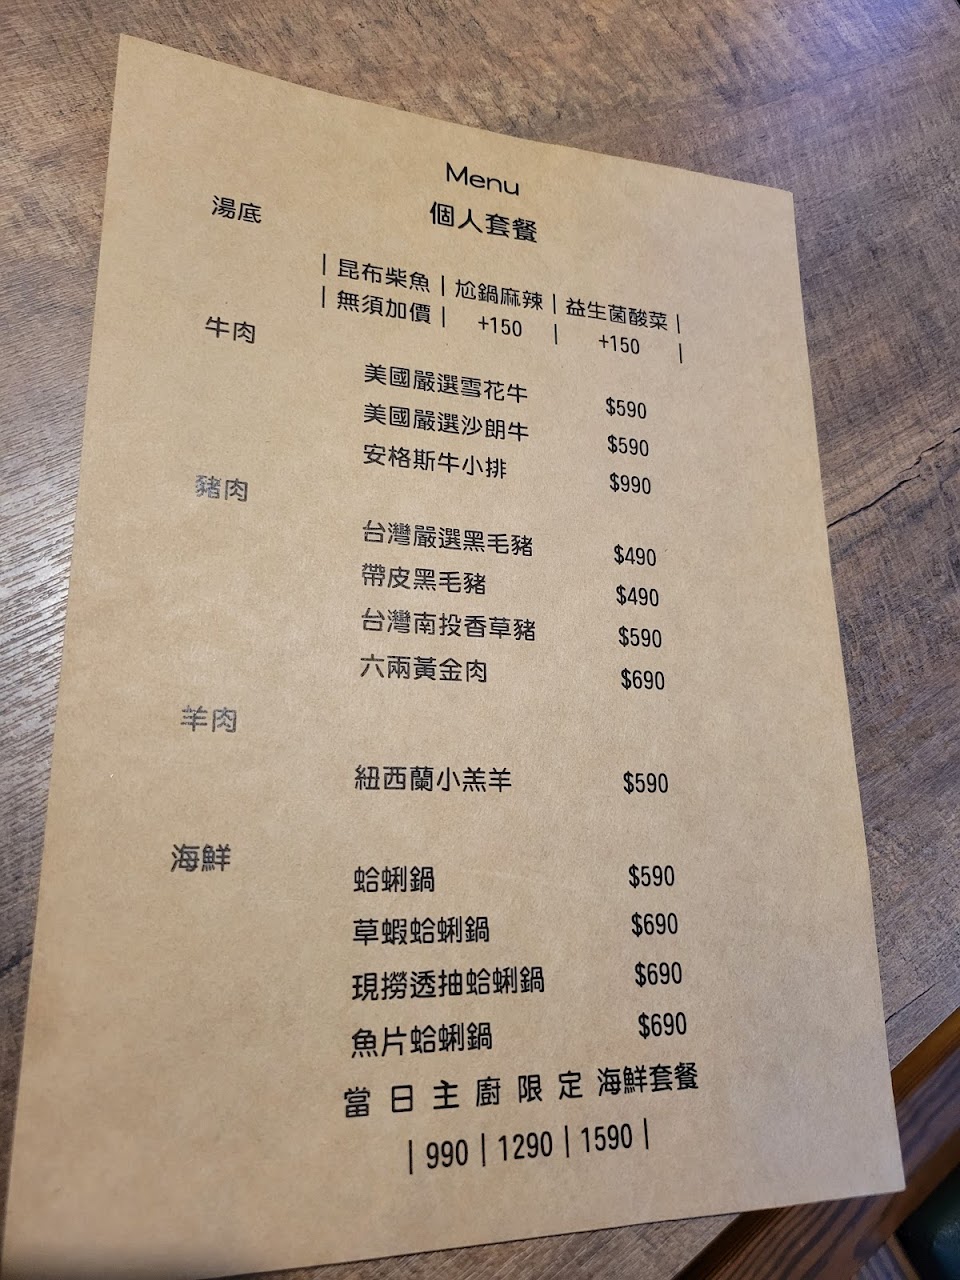 Menu
個人套餐
湯底
| 昆布柴魚 | 尬鍋麻辣 | 益生菌酸菜 |
| 無須加價 | +150 | +150 |
牛肉
美國嚴選雪花牛 $590
美國嚴選沙朗牛 $590
安格斯牛小排 $990
豬肉
台灣嚴選黑毛豬 $490
帶皮黑毛豬 $490
台灣南投香草豬 $590
六兩黃金肉 $690
羊肉
紐西蘭小羔羊 $590
海鮮
蛤蜊鍋 $590
草蝦蛤蜊鍋 $690
現撈透抽蛤蜊鍋 $690
魚片蛤蜊鍋 $690
當日主廚限定 海鮮套餐
| 990 | 1290 | 1590 |